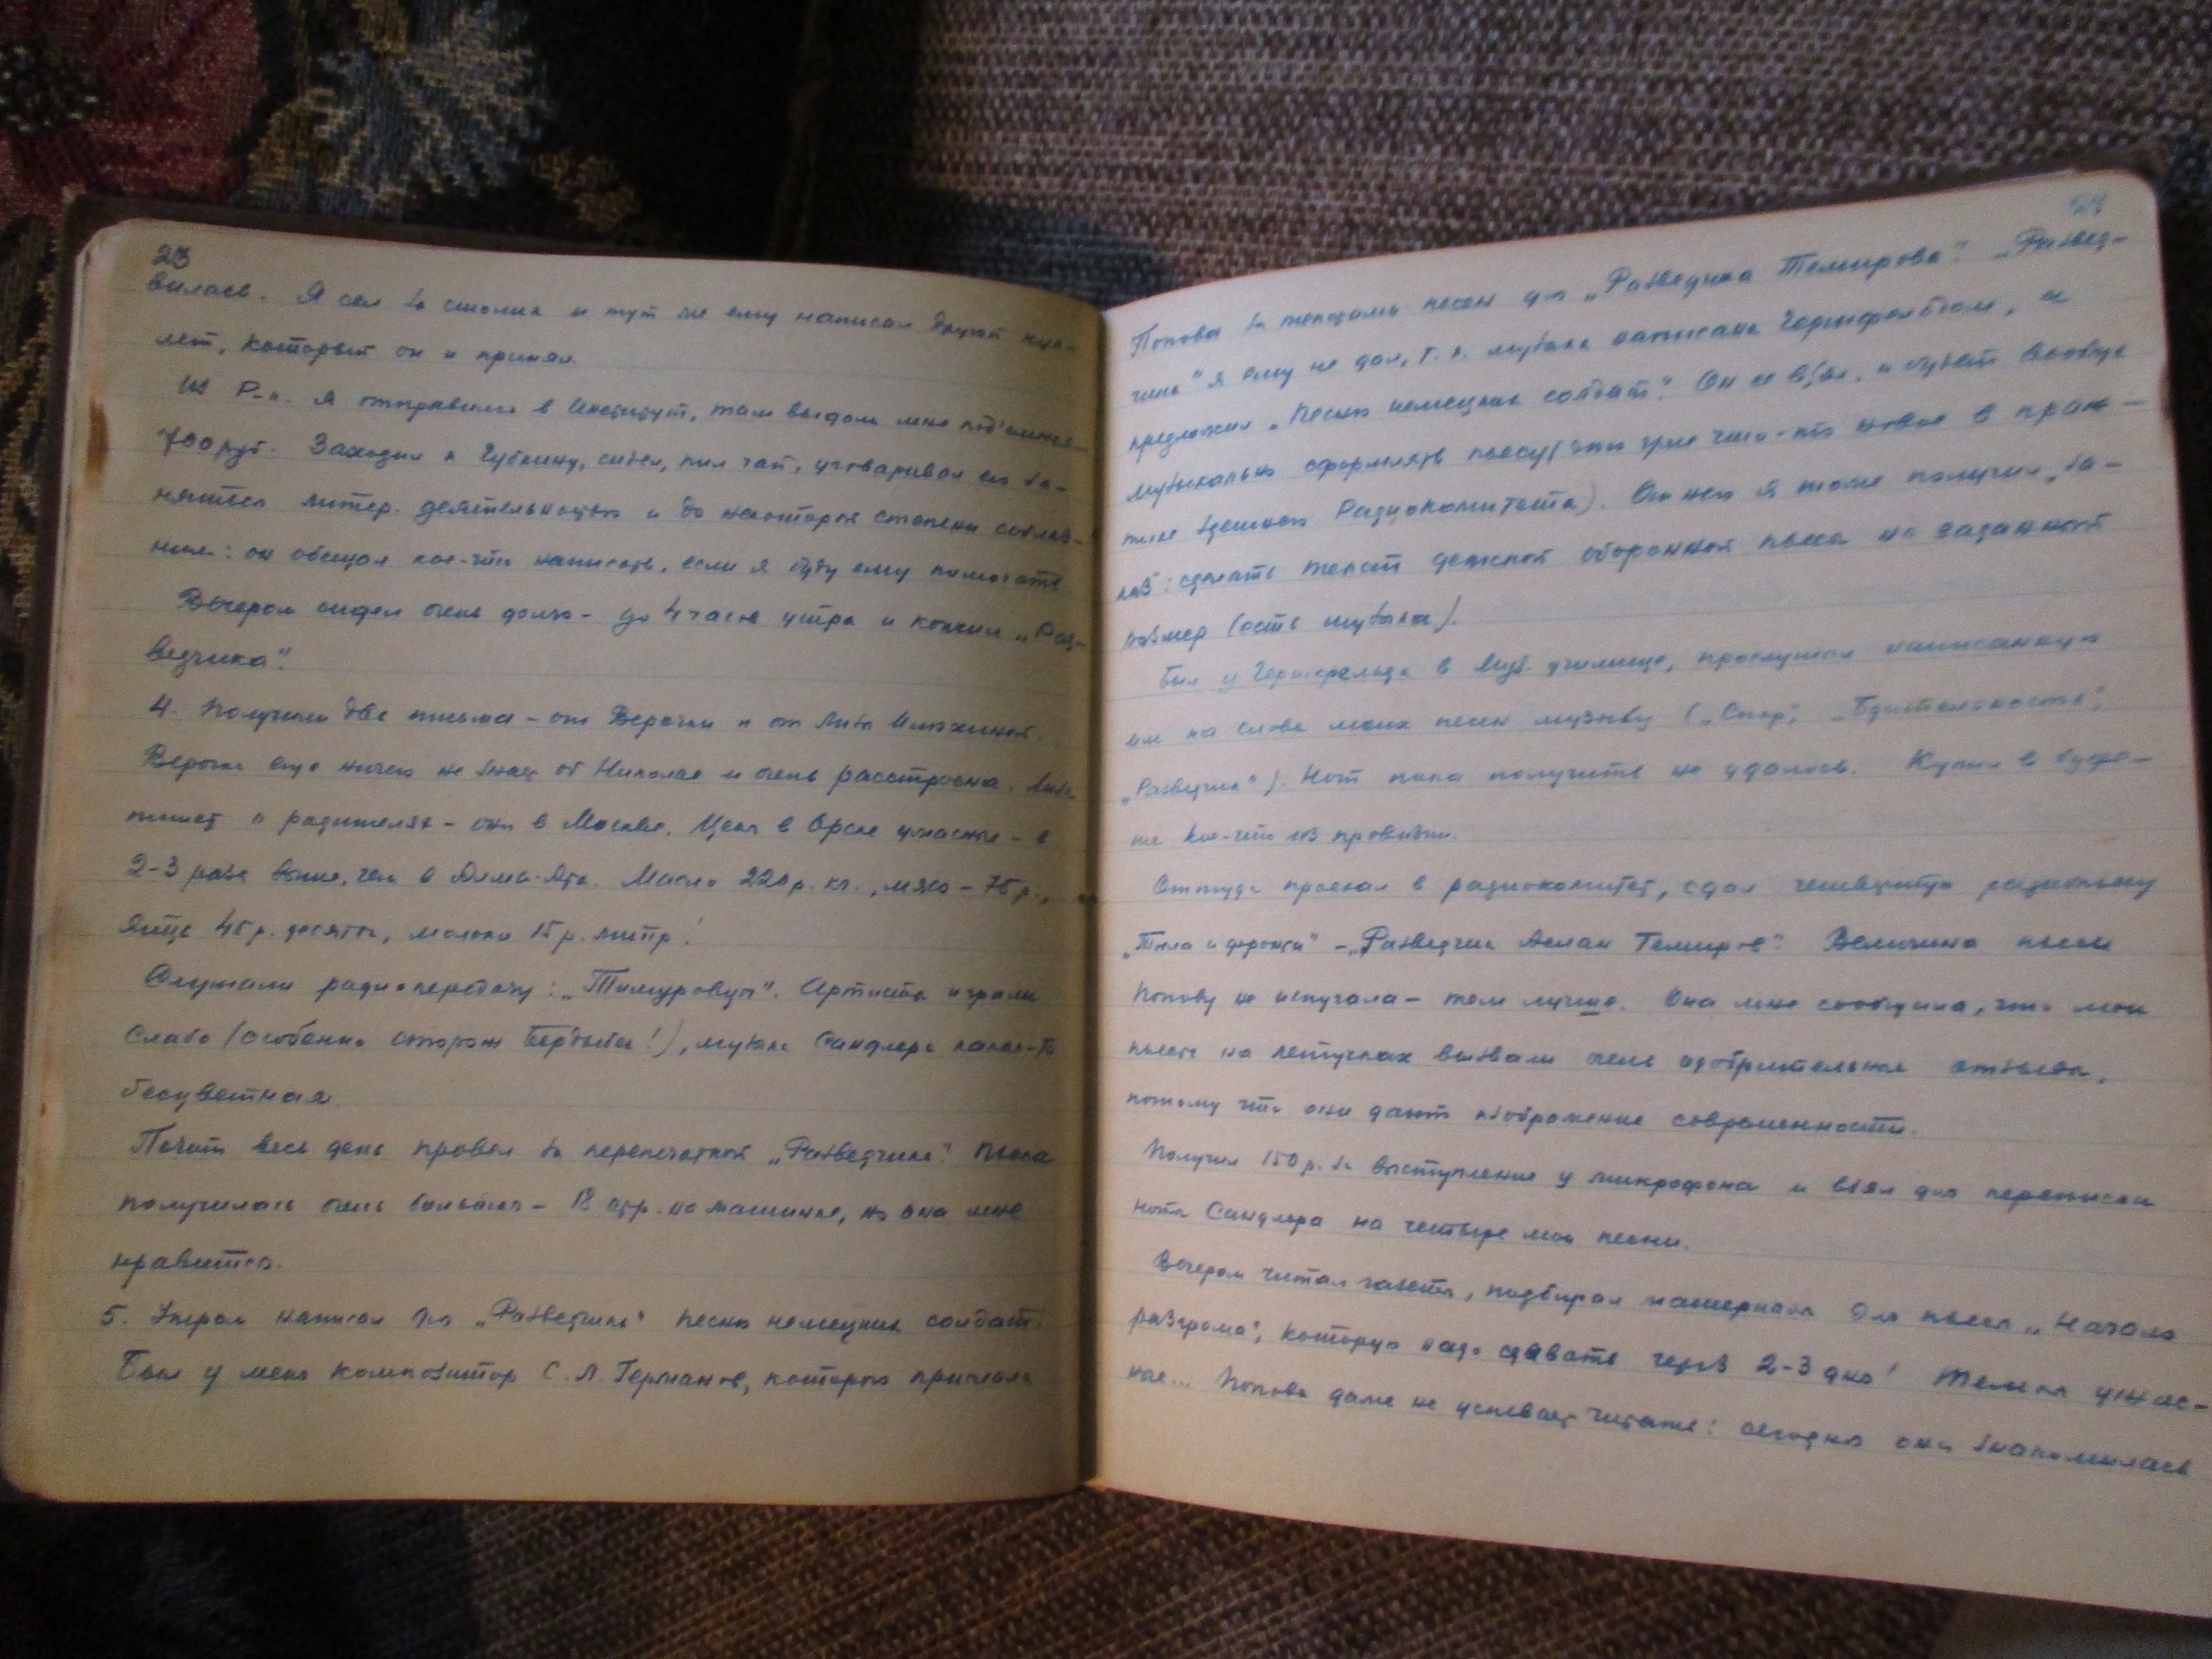 23
вилась. Я сел за столик и тут же ему написал другой куп-
лет, который он и принял.
Из Р-к. я отправился в Институт, там выдали мне
700 руб. Заходил к Губкину, сидел, пил чай, уговаривал его за-
няться литер. деятельностью и до некоторой степени соблаз-
нил: он обещал кое-что написать, если я буду ему помогать.
Вечером сидел очень долго – до 4 часов утра и кончил „Раз-
ведчика".
4. Получили два письма – от Верочки и от Лизы
Верочка еще ничего не знает об Николае и очень расстроена. Лиза
пишет о родителях – они в Москве. Цены в Орске ужасные – в
2-3 раза выше, чем в Алма-Ата. Масло 220 р. кг., мясо – 75 р.,
яйца 45 р. десяток, молоко 15 р. литр!
Слушали радиопередачу: „Тимуровцы". Артисты играли
слабо (особенно сторож !), музыка Сандлера какая-то
бесцветная.
Почти весь день провел за перепечаткой „Разведчика". Пьеса
получилась очень большая – 18 стр. на машинке, но она мне
нравится.
5. Утром написал для „Разведчика" песню немецких солдат.
Был у меня композитор С. Л. Германов, которого прислала
Попова за текстами песен для „Разведчика Темирова". „Развед-
чика" я ему не дал, т. к. музыка написана Герцфельдом, и
предложил „Песню немецких солдат". Он ее взял, и будет вообще
музыкально оформлять пьесу (это уже что-то новое в прак-
тике здешнего Радиокомитета). От него я тоже получил „за-
каз": сделать текст детской оборонной песни на заданный
размер (есть музыка).
Был у Герцфельда в Муз. училище, прослушал написанную
им на слова моих песен музыку („Спор", „Бдительность",
„Разведчик"). Нот пока получить не удалось. Купил в буфе-
те кое-что из провизии.
Оттуда проехал в радиокомитет, сдал радиопьесу
„Тыла и фронта" – „Разведчик Аслан Темиров". Величина пьесы
Попову не испугала – тем лучше. Она мне сообщила, что мои
пьесы на летучках вызвали очень одобрительные отзывы,
потому что они дают изображение современности.
Получил 150 р. за выступление у микрофона и взял для переписки
ноты Сандлера на четыре мои песни.
Вечером читал газеты, подбирал материал для пьесы „Начало
разгрома", которую надо сдавать через 2-3 дня! Темпы ужас-
ные... Попова даже не успевает читать: сегодня она знакомилась